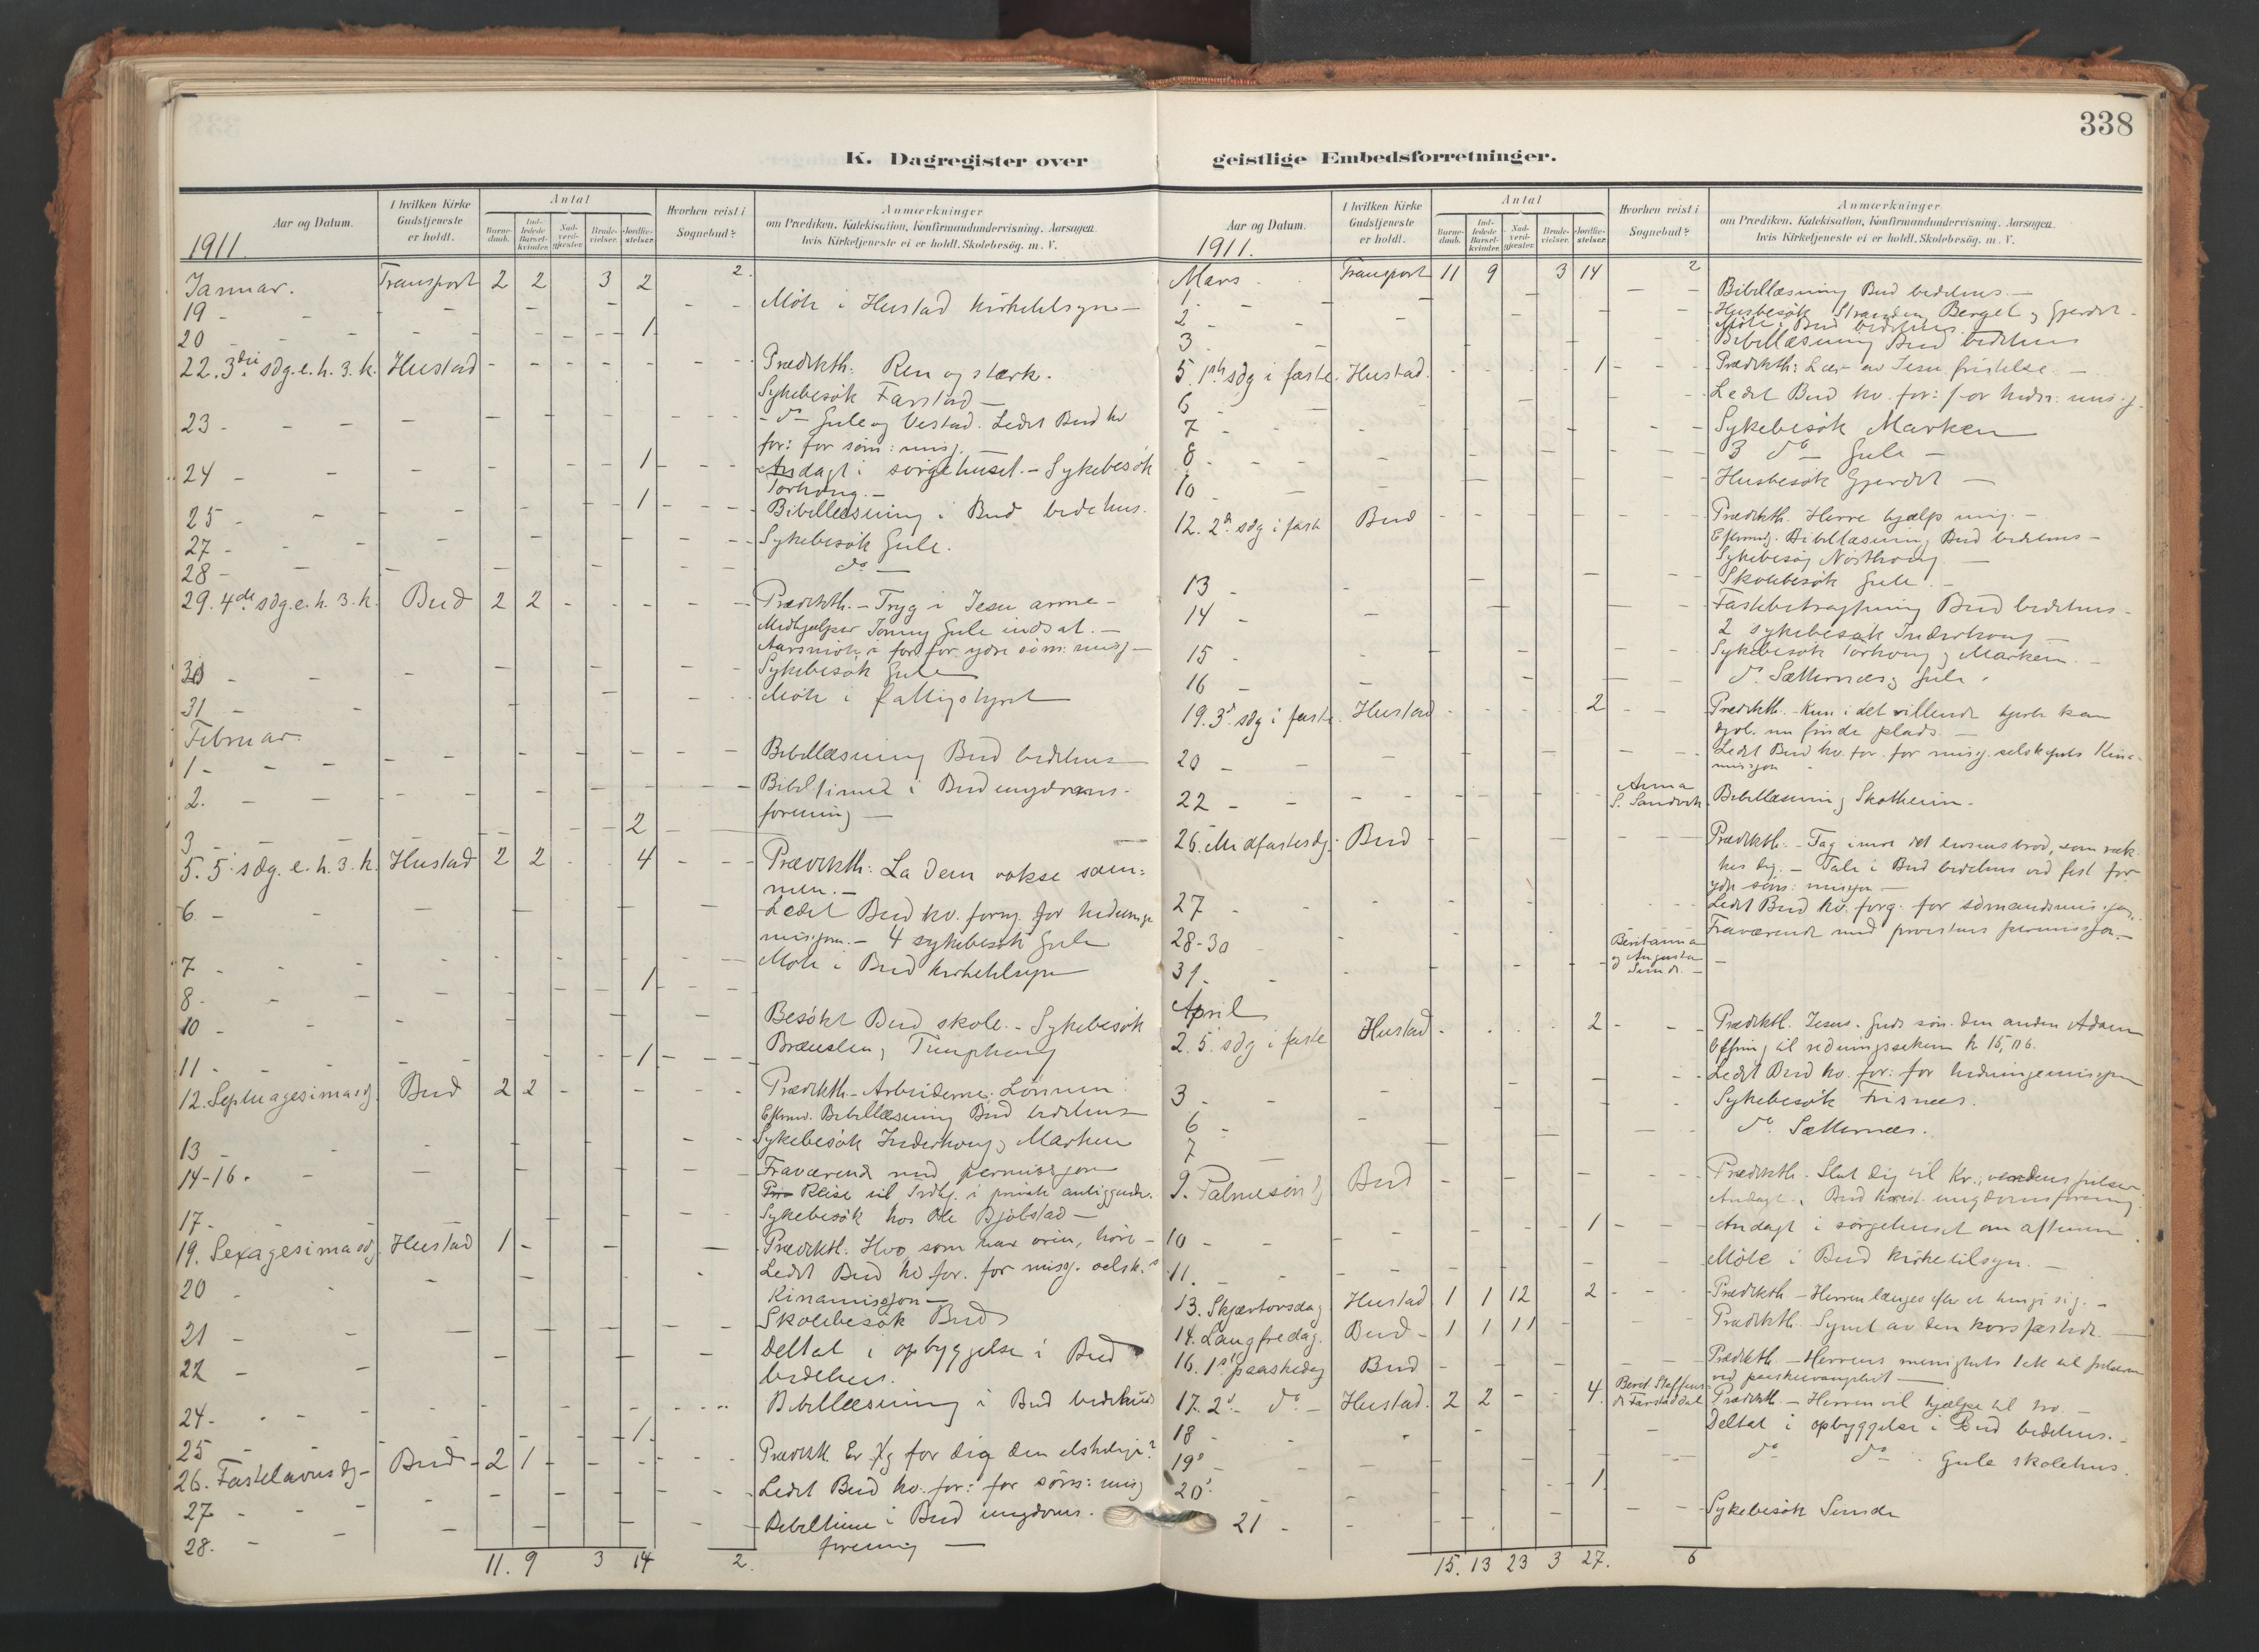 338
K. Dagregister over geistlige Embedsforretninger.
Aar og Datum.
I hvilken Kirke Gudstjeneste er holdt.
Antal
Barnedaab.
Indledede Barselkvinder.
Nadverdgjester.
Brudevielser.
Jordfæstelser.
Hvorhen reist i Sognebud?
Anmærkninger
om Prædiken, Katekisation, Konfirmandundervisning, Aarsagen
hvis Kirketjeneste ei er holdt, Skolebesøg. m. V.
1911.
Januar. Transport 2 2 3 2 2.
19 - - Møte i Hustad kirketilsyn -
20 - - 1
22. 3die sdg. e. h. 3. k. Hustad - Prædikth: Ren og stærk.
Sykebesøk Farstad -
23 - - do - Gule og Vestad. Ledet Bud kv
for: for søm: misj. -
24 - - 1 Andagt i sørgehuset. - Sykebesøk
Torhong. -
25 - - 1 Bibellæsning i Bud bedehus.
27 - - Sykebesøk Gule.
28 - - do -
29. 4de sdg. e. h. 3. k. Bud 2 2 - Prædikth. - Tryg i Jesu arme -
Medhjælper Jonny Gule indsat. -
Aarsmøte i for. for ydre søm: misj -
30 - - Sykebesøk Gule
31 - - Møte i fattigstyret
Februar.
1 - - Bibellæsning Bud bedehus
2. - - Bibeltime i Bud ungdoms-
forening -
3 - - 2
5. 5. sdg. e. h. 3. k. Hustad 2 2 4 Prædikth: La dem vokse sam-
men. -
6 - - Ledet Bud kv. foren. for hedninge
misjon. - 4 sykebesøk Gule
7 - - Møte i Bud kirketilsyn
8 - - 1
10 - - Besøkt Bud skole. - Sykebesøk
11 - - 1
12. Septuagesimasdg. Bud 2 2 - Prædikth - Arbeiderne: Lønnen.
Efterm. Bibellæsning Bud bedehus
13 - - Sykebesøk Inderhong, Marken
14-16. - Fraværende med permissjon
Reise til i private anliggender.
17 - - Sykebesøk hos Ole Bjølstad -
19. Sexagesimasdg. Hustad 1 - Prædikth. Hvo, som har øren, høre -
20 - - Ledet Bud kv for. for misj. selsk.s
Kinamissjon -
21 - - Skolebesøk Bud
22 - - Deltat i opbyggelse i Bud
bedehus.
24 - - Bibellæsning i Bud bedehus
25 1
26. Fastelavnsdg - Bud - 2 1 - Prædikth. Er jeg for dig den elskelige?
27 - - Ledet Bud kv. for: for søm: misj
28. - - Bibeltime i Bud ungdoms-
forening -
11. 9 3 14 2.
Aar og Datum.
I hvilken Kirke Gudstjeneste er holdt.
Antal
Barnedaab.
Indledede Barselkvinder.
Nadverdgjester.
Brudevielser.
Jordfæstelser.
Hvorhen reist i Sognebud?
Anmærkninger
om Prædiken, Katekisation, Konfirmandundervisning, Aarsagen
hvis Kirketjeneste ei er holdt, Skolebesøg. m. V.
1911.
Mars Transport 11 9 3 14 2
1 - - Bibellæsning Bud bedehus. -
2 - - Husbesøk Stranden, Berget, Gjerdet -
Møte i Bud bedehus
3 - - Bibellæsning Bud bedehus
5. 1ste sdg i faste. Hustad. 1 - Prædikth: Lær av Jesu fristelse -
6 - - Ledet Bud kv. for: for hedn: misj.
7 - - Sykebesøk Marken
8 - - 3 do - Gule -
10 - - Husbesøk Gjerdet -
12. 2d. sdg i faste Bud - Prædikth. Herre hjælp mig. -
Efterm. Bibellæsning Bud bedehus -
Sykebesøg Northong -
13 - - Skolebesøk Gule. -
14 - - Fastebetragtning Bud bedehus -
2 sykebesøk Inderhong -
15 - - Sykebesøk Torhong, Marken. -
16 - - do. Sætternæs, Gule.
19. 3d. sdg i faste. Hustad 2 - Prædikth. - Kun i det villende hjerte kan
finde plads. -
20 - - Ledet Bud kv. for. for misj. selskapets Kina-
missjon -
22 - - Anna S. Sandvik Bibellæsning Skotheim.
26. Midfastesdg. Bud - Prædikth. - Tag imot det livsens brød, som ræk-
kes dig. - Tale i Bud bedehus ved fest for
ydre søm: missjon -
27 - - Ledet Bud kv. forg. for sømandsmissjon.
28-30 Fraværende med provstens permissjon. -
31. - Beritanna og Augusta -
April
2. 5. sdg i faste Hustad 2 - Prædikth. Jesus. Guds søn. den anden Adam
Ledet Bud kv. for: for hedningemissjon
3 - - Sykebesøk Frisnes.
6 - - do. Sætternæs.
7 -
9. Palmesøndg Bud - Prædikth. Slut dig til Kr.,
Andagt i Bud ungdomsforening
10 - - 1 - Andagt i sørgehuset om aftenen
11. - - Møte i Bud kirketilsyn. -
13. Skjærtorsdag Hustad 1 1 12 2 - Prædikth - Herren længes efter at sig. -
14. Langfredag. Bud - 1 1 11 - Prædikth. Synet av den korsfæstede. -
16. 1ste paaskedag Bud - Prædikth - Herrens menighets
ved paaskeevangeliet -
17. 2d. do - Hustad. 2 2 - - 4 Prædikth. - Herren vil hjælpe til tro. -
18 - - Deltat i opbyggelse i Bud bedehus. -
19 - - do do Gule skolehus.
20 - 1
21 - - Sykebesøk Sunde
15. 13 23 3 27. 6